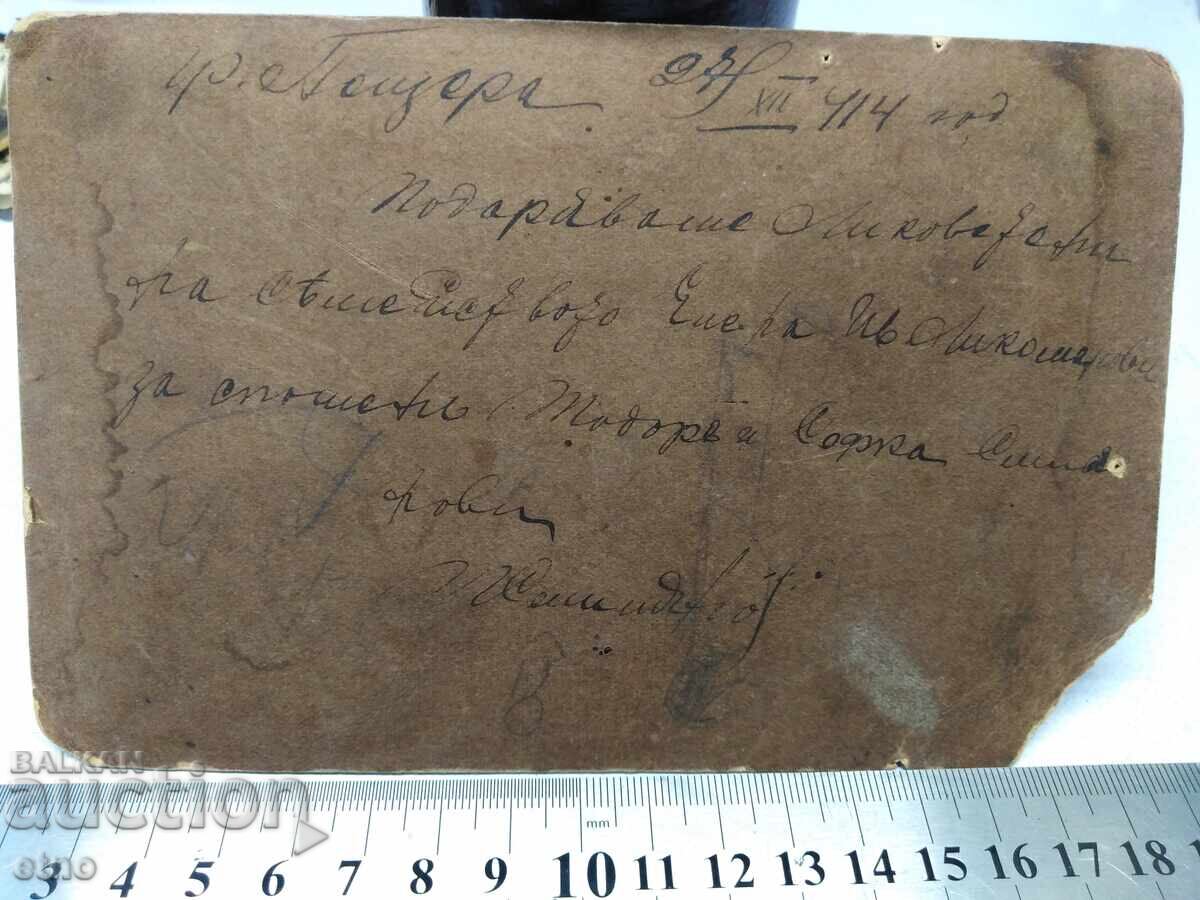 гр. Пещера 27/XII 914 год
Подаряваме Ликовете ни
на сѣмейството Николарови
за споменъ Тодоръ и Софка Смила
рови
BALKAN
auction
etno
mm
3 4 5 6 7 8 9 10 11 12 13 14 15 16 17 18